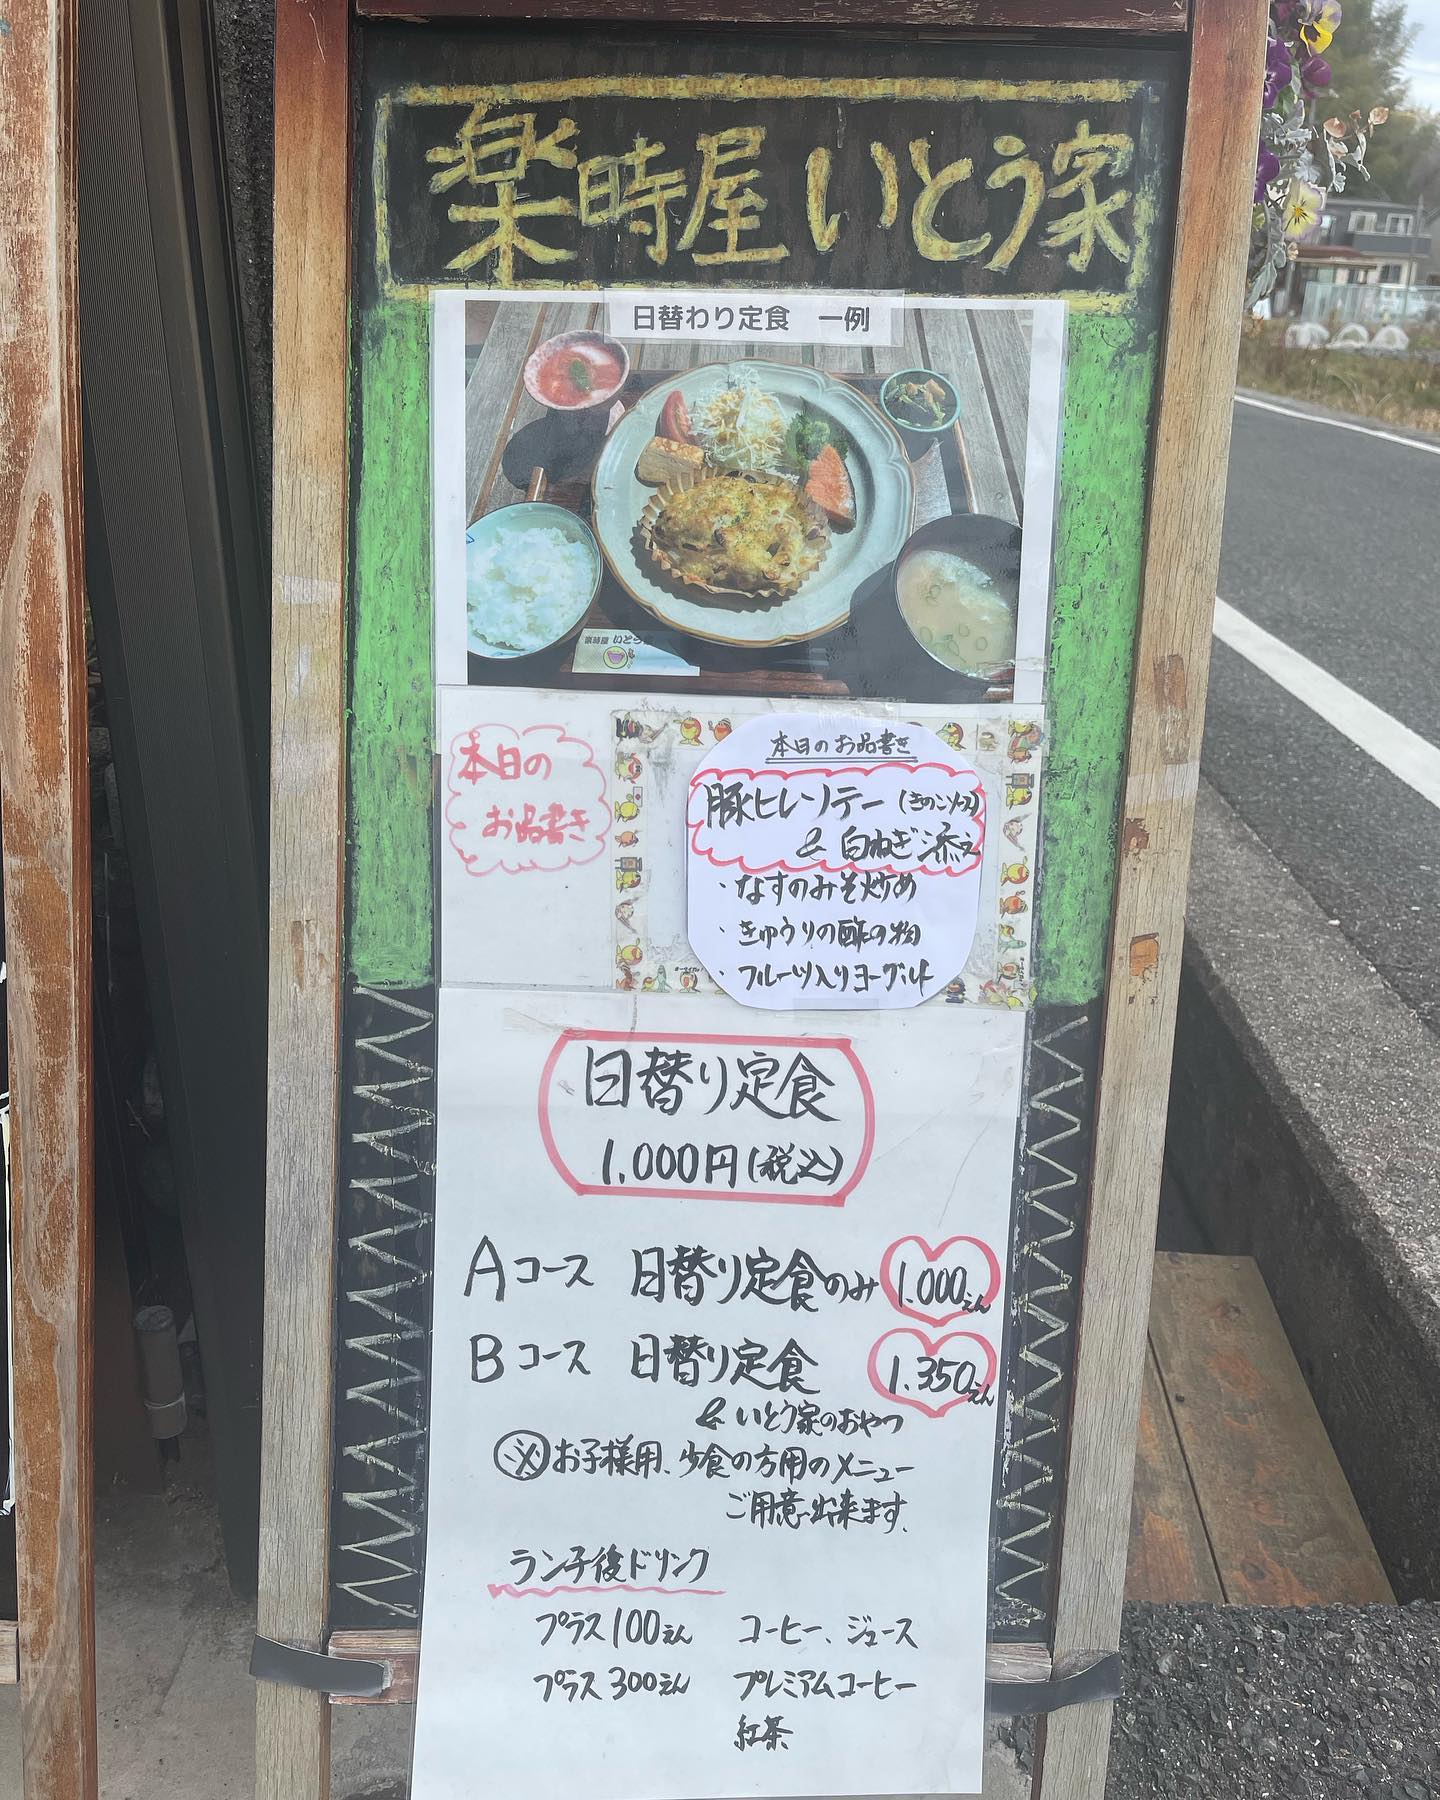 楽時屋 いとう家
日替わり定食 一例
楽時屋 いとう家
本日の
お品書き
本日のお品書き
豚ヒレソテー(きのこソース)
& 白ねぎ添え
・なすのみそ炒め
・きゅうりの酢の物
・フルーツ入りヨーグルト
日替り定食
1.000円(税込)
Aコース 日替り定食のみ 1.000えん
Bコース 日替り定食 1.350えん
& いとう家のおやつ
※お子様用、少食の方用のメニュー
ご用意出来ます。
ランチ後ドリンク
プラス100えん コーヒー、ジュース
プラス300えん プレミアムコーヒー
紅茶